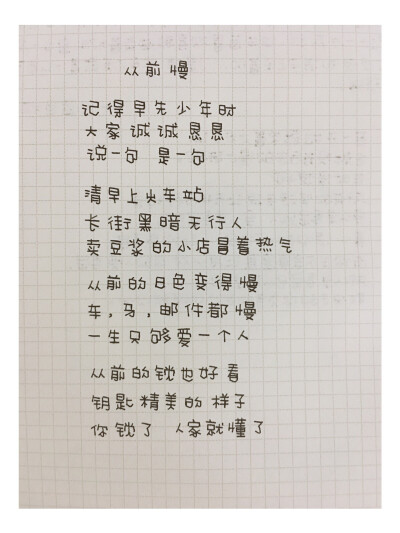 从前慢
记得早先少年时
大家诚诚恳恳
说一句 是一句
清早上火车站
长街黑暗无行人
卖豆浆的小店冒着热气
从前的日色变得慢
车,马,邮件都慢
一生只够爱一个人
从前的锁也好看
钥匙精美的样子
你锁了 人家就懂了